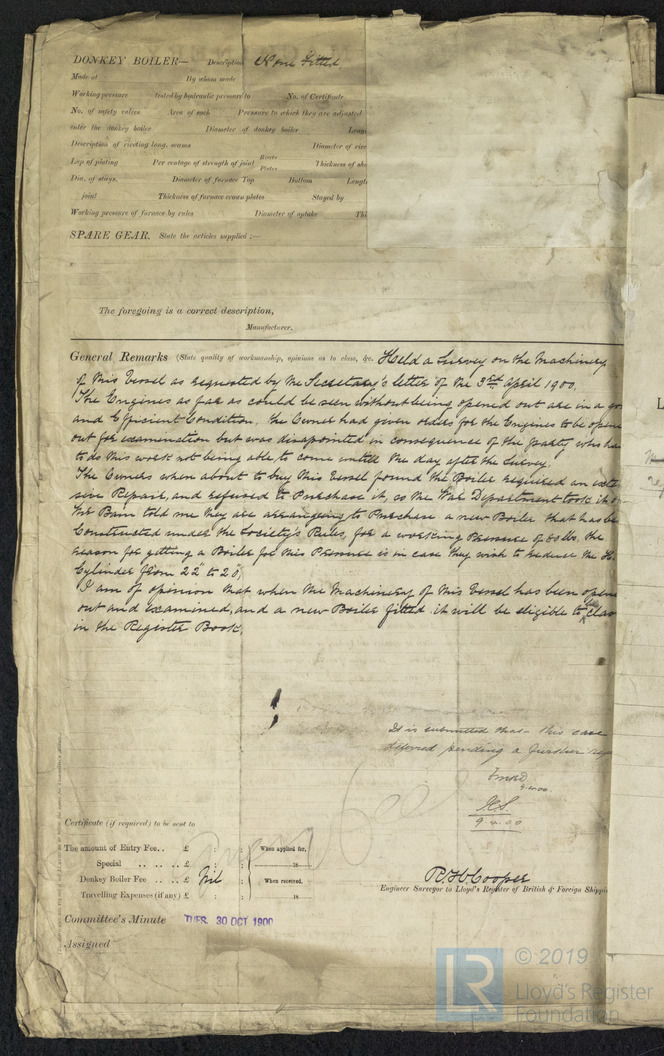 DONKEY BOILER— Description None Fitted
Made at By whom made
Working pressure tested by hydraulic pressure to No. of Certificate
No. of safety valves Area of each Pressure to which they are adjusted
enter the donkey boiler Diameter of donkey boiler
Description of riveting long. seams Diameter of
Lap of plating Per centage of strength of joint Rivets Plates Thickness of
Dia. of stays. Diameter of furnace Top Bottom
joint Thickness of furnace crown plates Stayed by
Working pressure of furnace by rules Diameter of uptake
SPARE GEAR. State the articles supplied :—
The foregoing is a correct description,
Manufacturer.
General Remarks (State quality of workmanship, opinions as to class, &c. Held a Survey on the Machinery
of this Vessel as requested by the Secretary's letter of the 3rd April 1900.
The Engines as far as could be seen without being opened out are in a
and Efficient Condition. the Owner had given orders for the Engines to be
out for examination but was disapointed in consequence of the party who
to do this work not being able to come until the day after the Survey.
The Owners when about to buy this Vessel found the Boiler required an
sive Repair, and refused to Purchase it, so the War Department took it
Mr Bain told me they are arranging to Purchase a new Boiler that has
Constructed under the Society's Rules, for a working Pressure of 80 lbs. the
reason for getting a Boiler for this Pressure is in case they wish to reduce the H.
Cylinder from 22" to 20".
I am of opinion that when the Machinery of this Vessel has been
out and examined, and a new Boiler fitted it will be eligible to
in the Register Book.
It is submitted that this case
deferred pending a further
9.11.00
9.11.00
Certificate (if required) to be sent to
The amount of Entry Fee.. £ : : When applied for,
Special .. .. .. £ : : 18
Donkey Boiler Fee .. .. £ Nil : When received,
Travelling Expenses (if any) £ : : 18
R H Cooper
Engineer Surveyor to Lloyd's Register of British & Foreign
Committee's Minute TUES. 30 OCT 1900
Assigned
LR © 2019
Lloyd's Register
Foundation